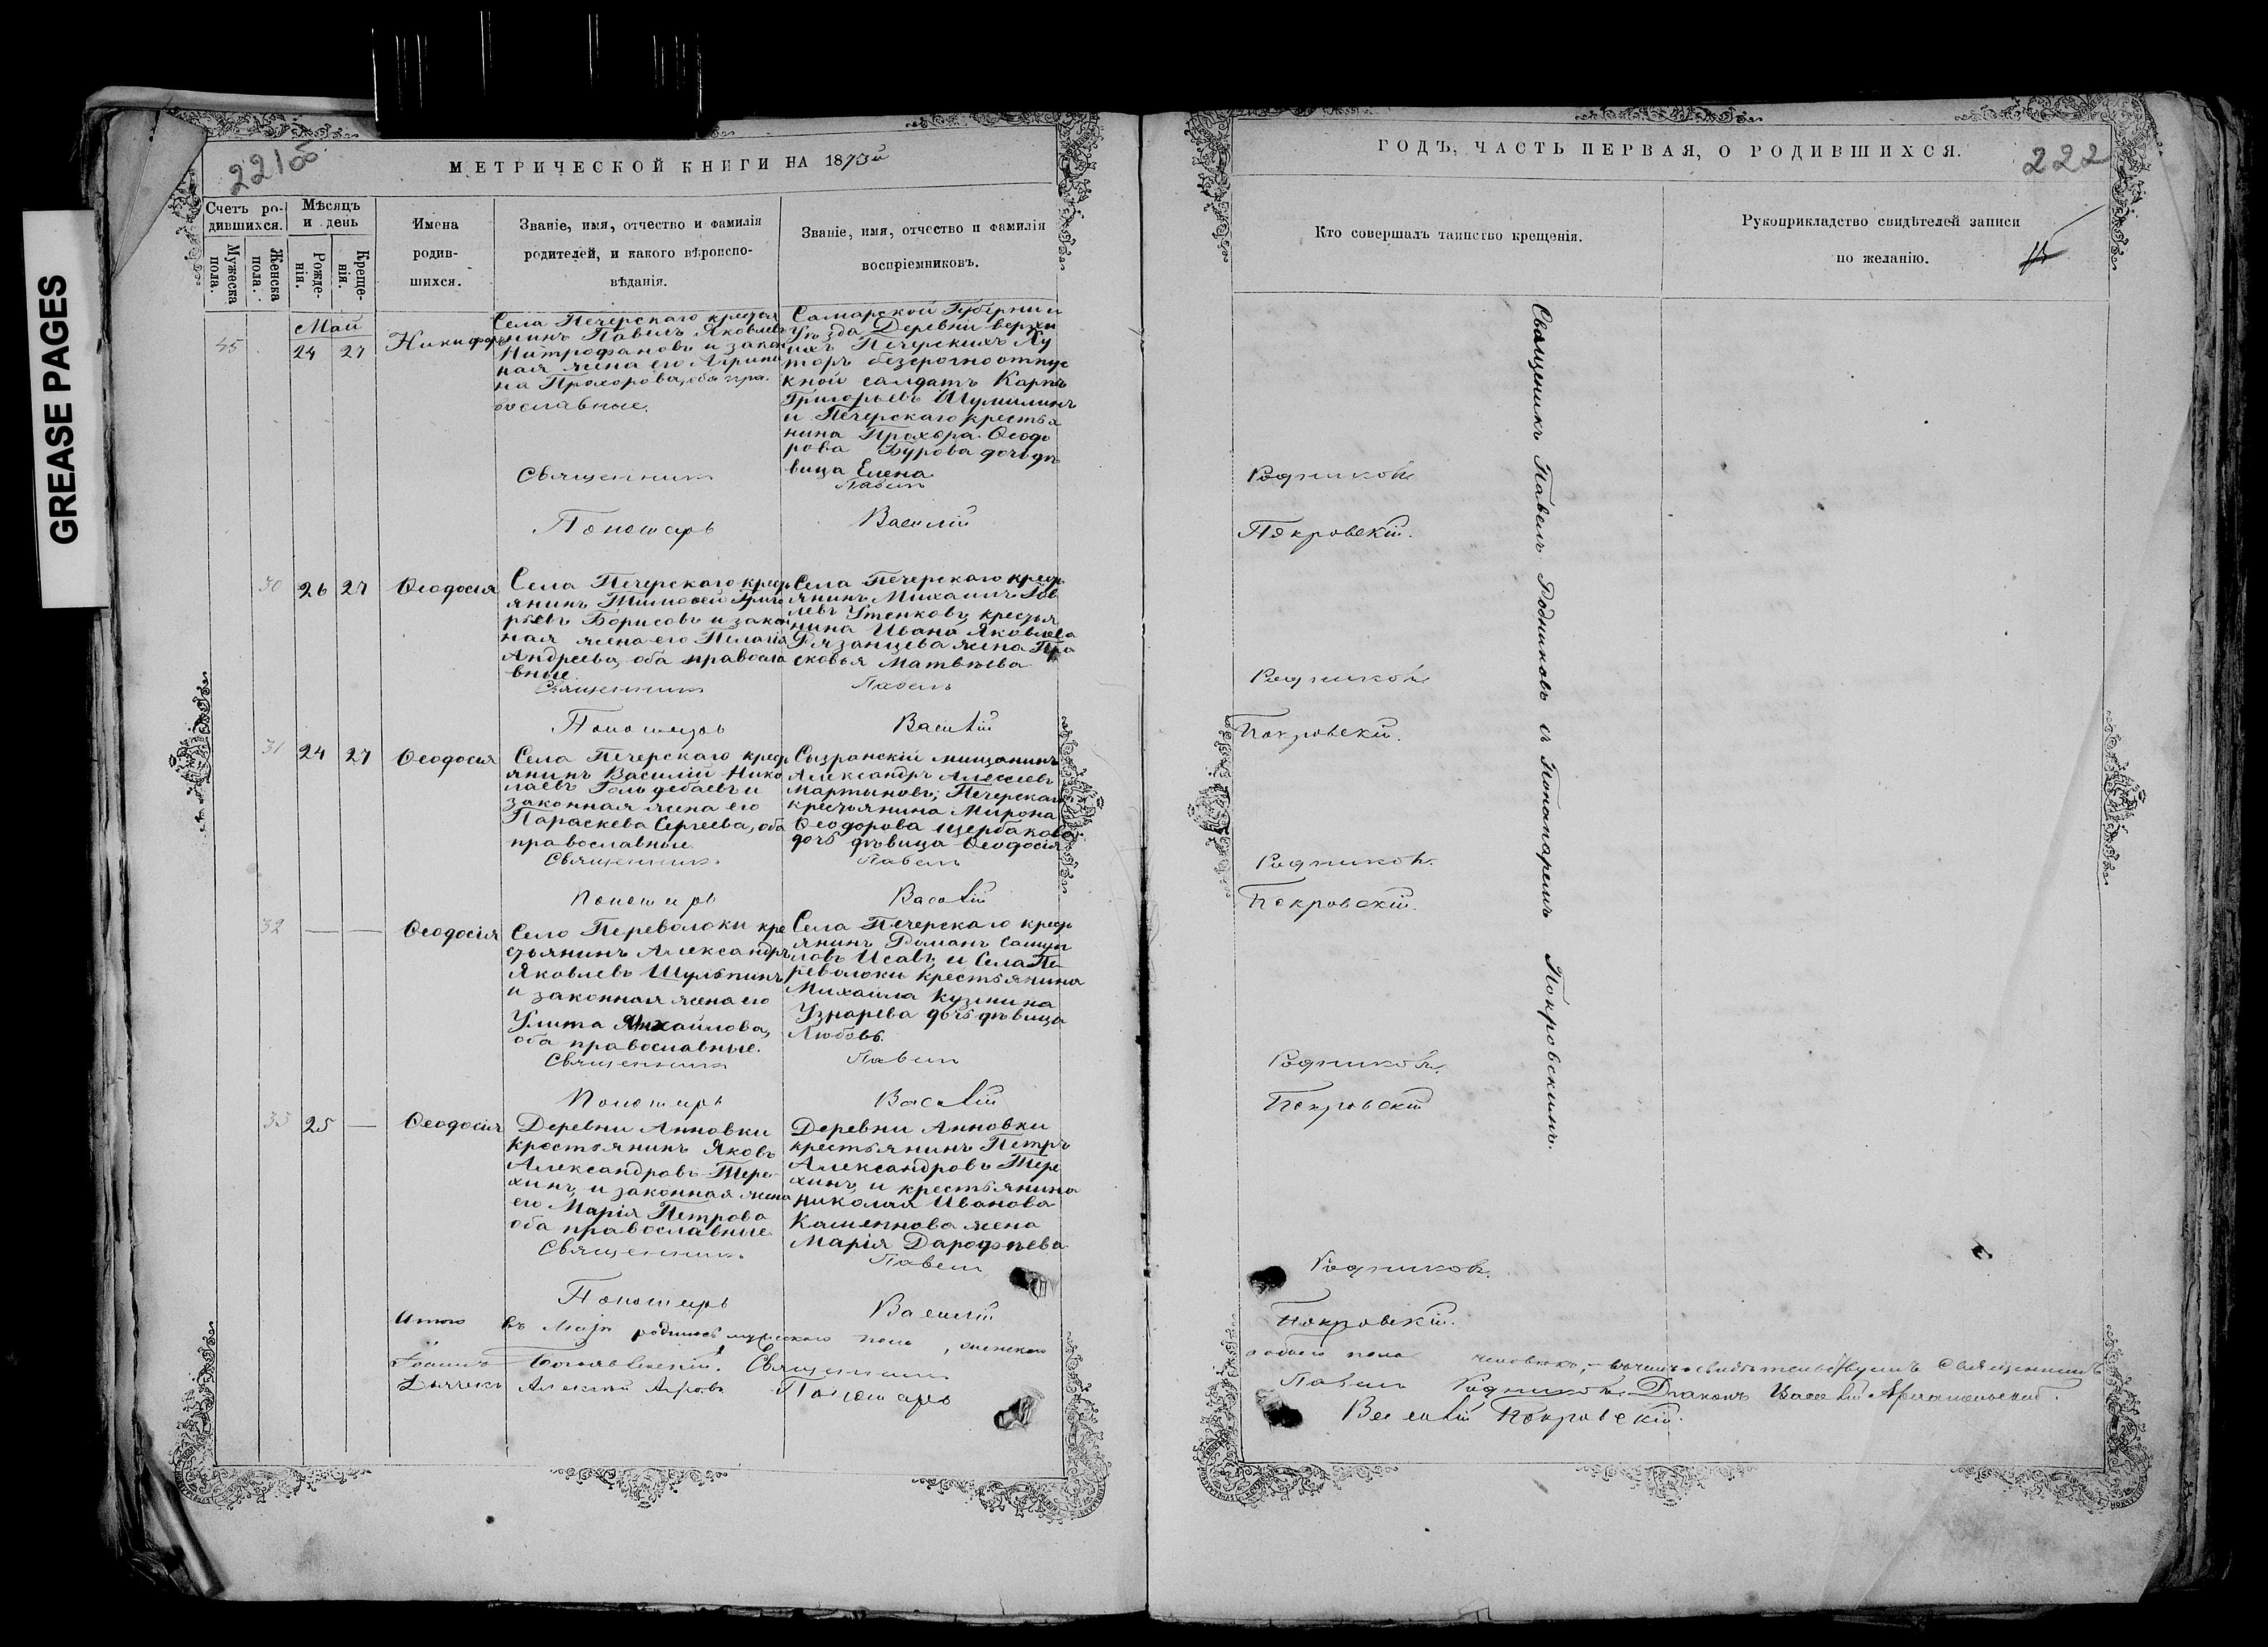 GREASE PAGES
221 об
МЕТРИЧЕСКОЙ КНИГИ НА 1873й
Счетъ ро-
дившихся.
Мужеска
пола.
Женска
пола.
Мѣсяцъ
и день
Рожде-
нія.
Креще-
нія.
Имена
родив-
шихся.
Званіе, имя, отчество и фамилія
родителей, и какого вѣроиспо-
вѣданія.
Званіе, имя, отчество и фамилія
воспріемниковъ.
Май
45 24 27 Никифоръ
Села Печерскаго крестья
нинъ Павелъ Яковлевъ
Митрофановъ и закон
ная жена его Агрипи
на Прохорова, оба пра-
вославные.
Самарской Губерніи
Уѣзда Деревни верхн
ихъ Печерскихъ Ху
торъ безсрочноотпус
кной салдатъ Карпъ
Григорьевъ Шумилинъ
и Печерскаго крестья
нина Прохора Ѳеодо
рова Бурова дочь дѣ
вица Елена
Священникъ Павелъ
Пономарь Василій
30 26 27 Ѳеодосія
Села Печерскаго крест
янинъ Тимоѳей Григо
рьевъ Борисовъ и закон
ная жена его Пелагія
Андреева, оба правосла
вные
Села Печерскаго крест
янинъ Михаилъ Іов
левъ Утенковъ, крестья
нина Ивана Яковлева
Рязанцева жена Пра
сковья Матвѣева
Священникъ Павелъ
Пономарь Василій
31 24 27 Ѳеодосія
Села Печерскаго крест
янинъ Василій Нико
лаевъ Гольдебаевъ и
законная жена его
Параскева Сергеева, оба
православные
Сызранскій мищанинъ
Александръ Алексеевъ
Мартыновъ; Печерскаго
крестьянина Мирона
Ѳеодорова Щербакова
дочь дѣвица Ѳеодосія
Священникъ Павелъ
Пономарь Василій
32 — — Ѳеодосія
Село Переволоки кре
стьянинъ Александръ
Яковлевъ Шульпинъ
и законная жена его
Улита Михайлова,
оба православные.
Села Печерскаго крест
янинъ Романъ Самуи
ловъ Исавъ, и Села Пе
револоки крестьянина
Михаила Кузмина
дочь дѣвица
Любовь.
Священникъ Павелъ
Пономарь Василій
33 25 — Ѳеодосія
Деревни Анновки
крестьянинъ Яковъ
Александровъ Тере-
хинъ, и законная жена
его Марія Петрова
оба православные
Деревни Анновки
крестьянинъ Петръ
Александровъ Тере
хинъ, и крестьянина
Николая Иванова
Каменнова жена
Марія Дарофѣева
Священникъ Павелъ
Пономарь Василій
Итого въ Маѣ родилось мужескаго пола , женскаго
Іоаннъ Богоявленскій. Священникъ
Дьячекъ Алексій Пономарь
ГОДЪ, ЧАСТЬ ПЕРВАЯ, О РОДИВШИХСЯ.
222
Кто совершалъ таинство крещенія.
Рукоприкладство свидѣтелей записи
по желанію.
Родниковъ
Покровскій.
Родниковъ
Покровскій.
Родниковъ.
Покровскій.
Родниковъ.
Покровскій
Родниковъ.
Покровскій.
Священникъ Павелъ Родниковъ съ Пономаремъ Покровскимъ.
а обоего пола человѣкъ, — въ чемъ и свидѣтельствуемъ Священникъ
Павелъ Родниковъ Діаконъ Василій Архангельскій.
Василій Покровскій.